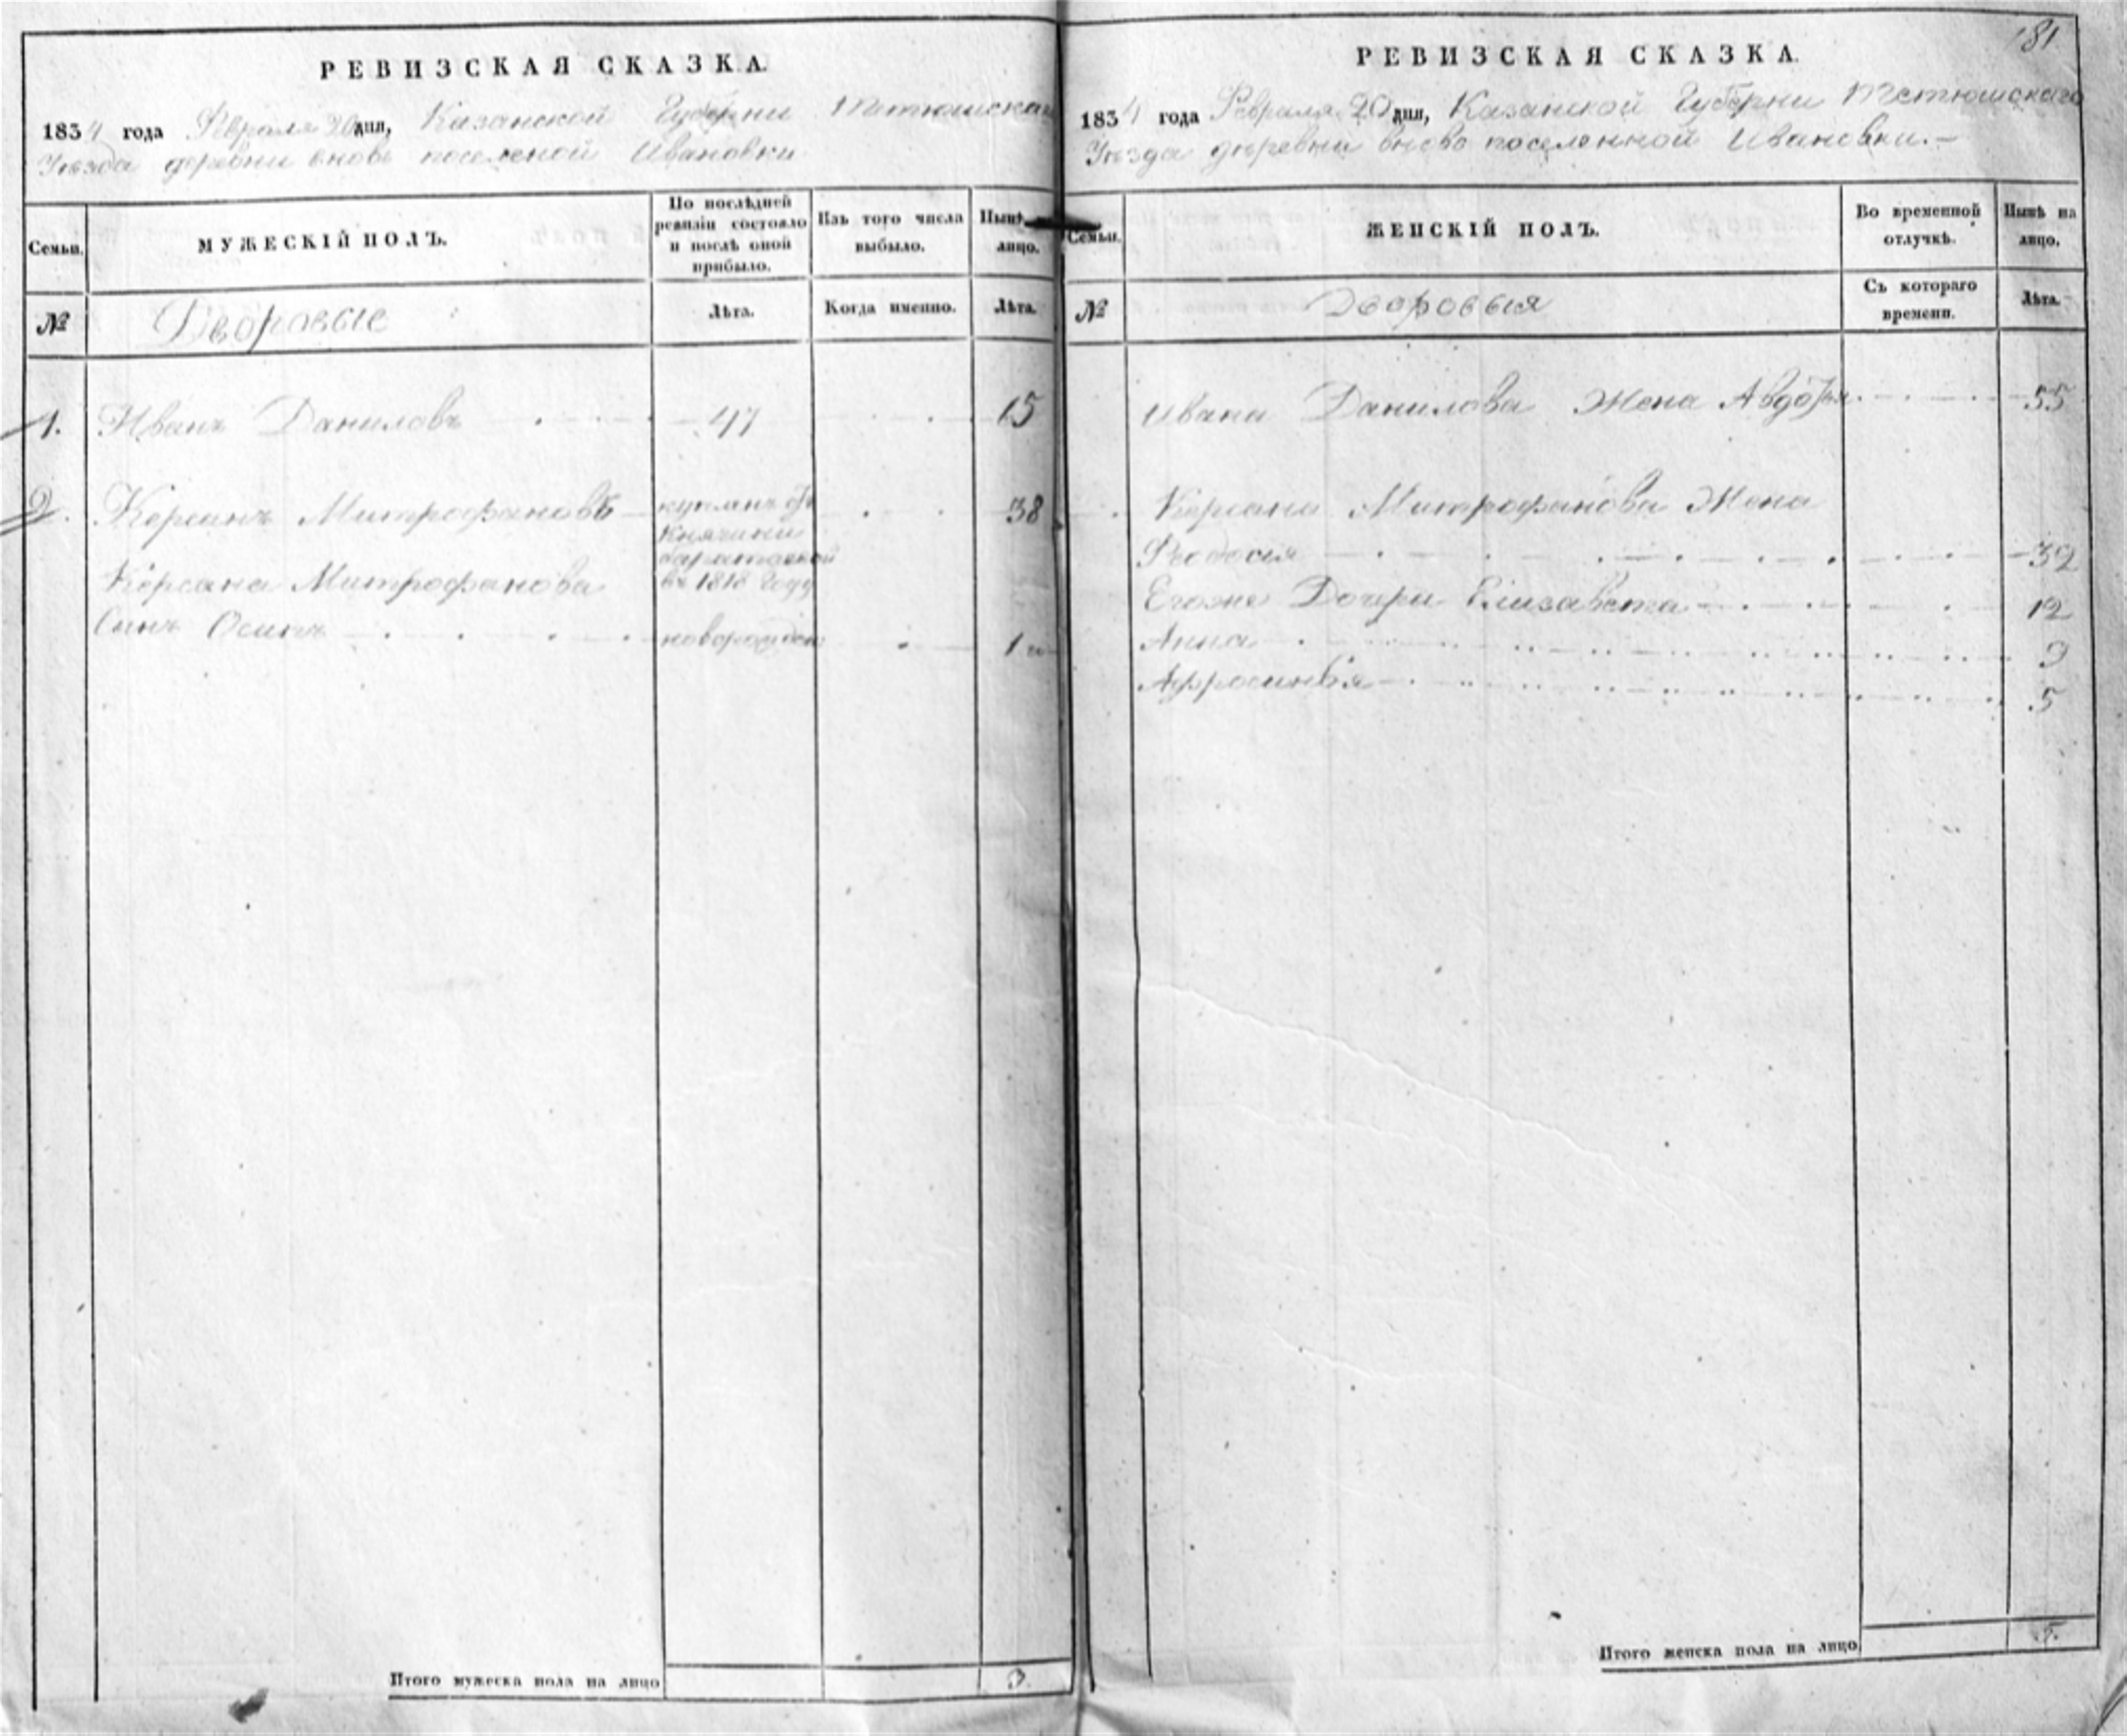 РЕВИЗСКАЯ СКАЗКА.
1834 года Февраля 20 дня, Казанской Губерни Тетюшскаго
Уѣзда деревни вновь поселеной Ивановки
Семьи.
МУЖЕСКІЙ ПОЛЪ.
По послѣдней
ревизіи состояло
и послѣ оной
прибыло.
Изъ того числа
выбыло.
Нынѣ
лицо.
№
Дворовые
Лѣта.
Когда именно.
Лѣта.
1. Иванъ Даниловъ 47 15
2. Керсанъ Митрофановъ 38
Княгини
въ 1818 году
Керсана Митрофанова
Сынъ Осипъ 1
Итого мужеска пола на лицо 3
181
РЕВИЗСКАЯ СКАЗКА.
1834 года Февраля 20 дня, Казанской Губерни Тетюшскаго
Уѣзда деревни вновь поселенной Ивановки.—
Семьи.
ЖЕНСКІЙ ПОЛЪ.
Во временной
отлучкѣ.
Нынѣ на
лицо.
№
Дворовыя
Съ котораго
времени.
Лѣта.
Ивана Данилова Жена Авдотья 55
Керсана Митрофанова Жена
Феодосия 32
Егоже Дочери Елизавета 12
Анна 9
Афросинья 5
Итого женска пола на лицо 5.